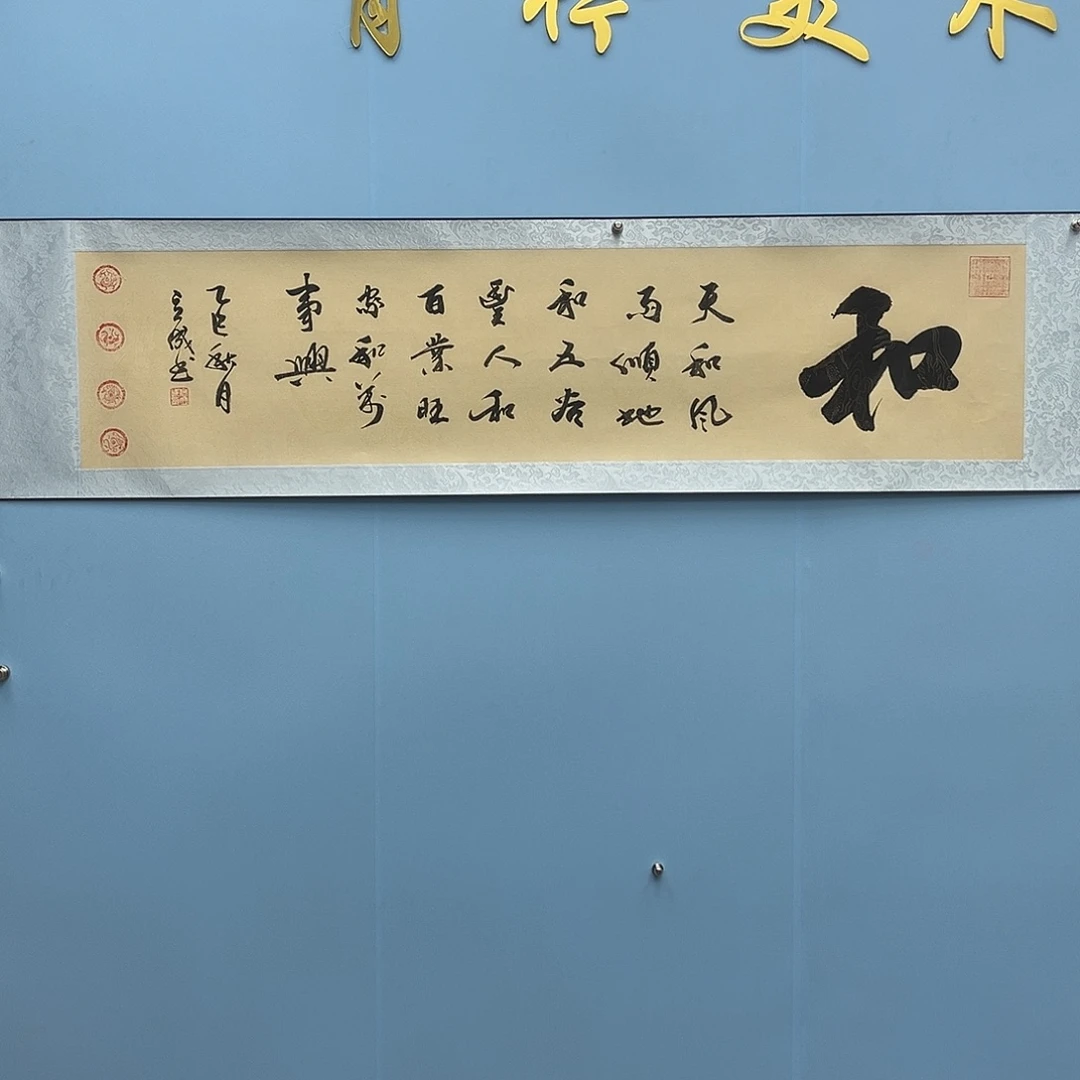 和
天和风
雨順地
和五谷
豐人和
百業旺
家和萬
事興
乙巳秋月
成书